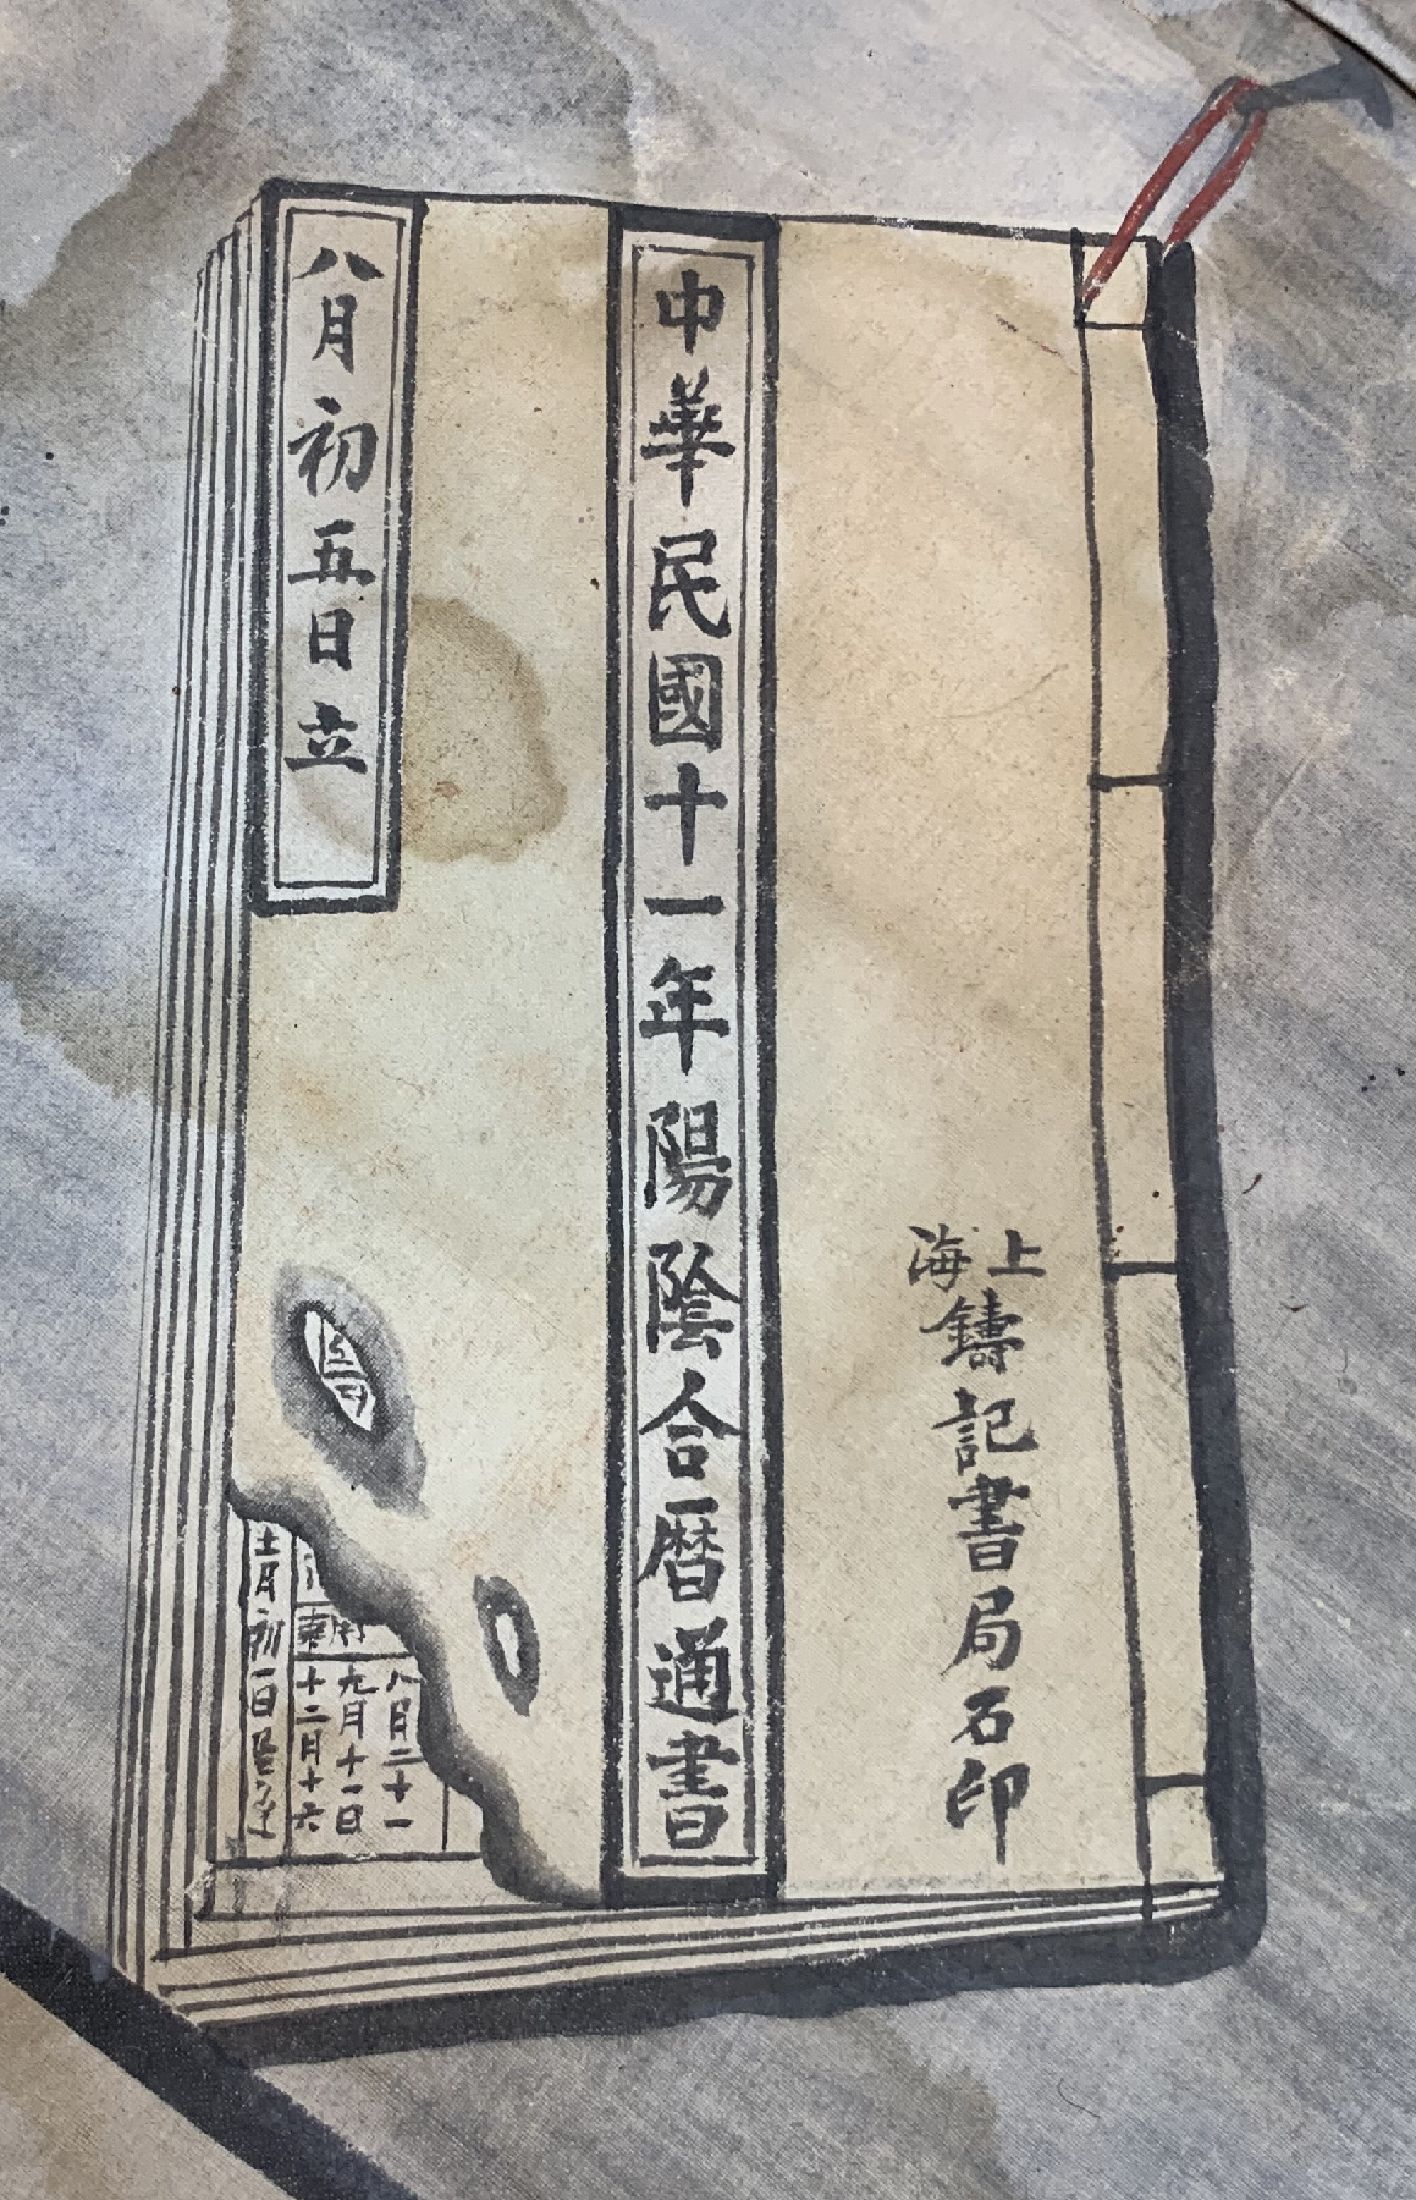 上海
鑄記書局石印
中華民國十一年陽陰合曆通書
八月初五日立
八月二十一
九月十一日
十二月十六
十一月初一日